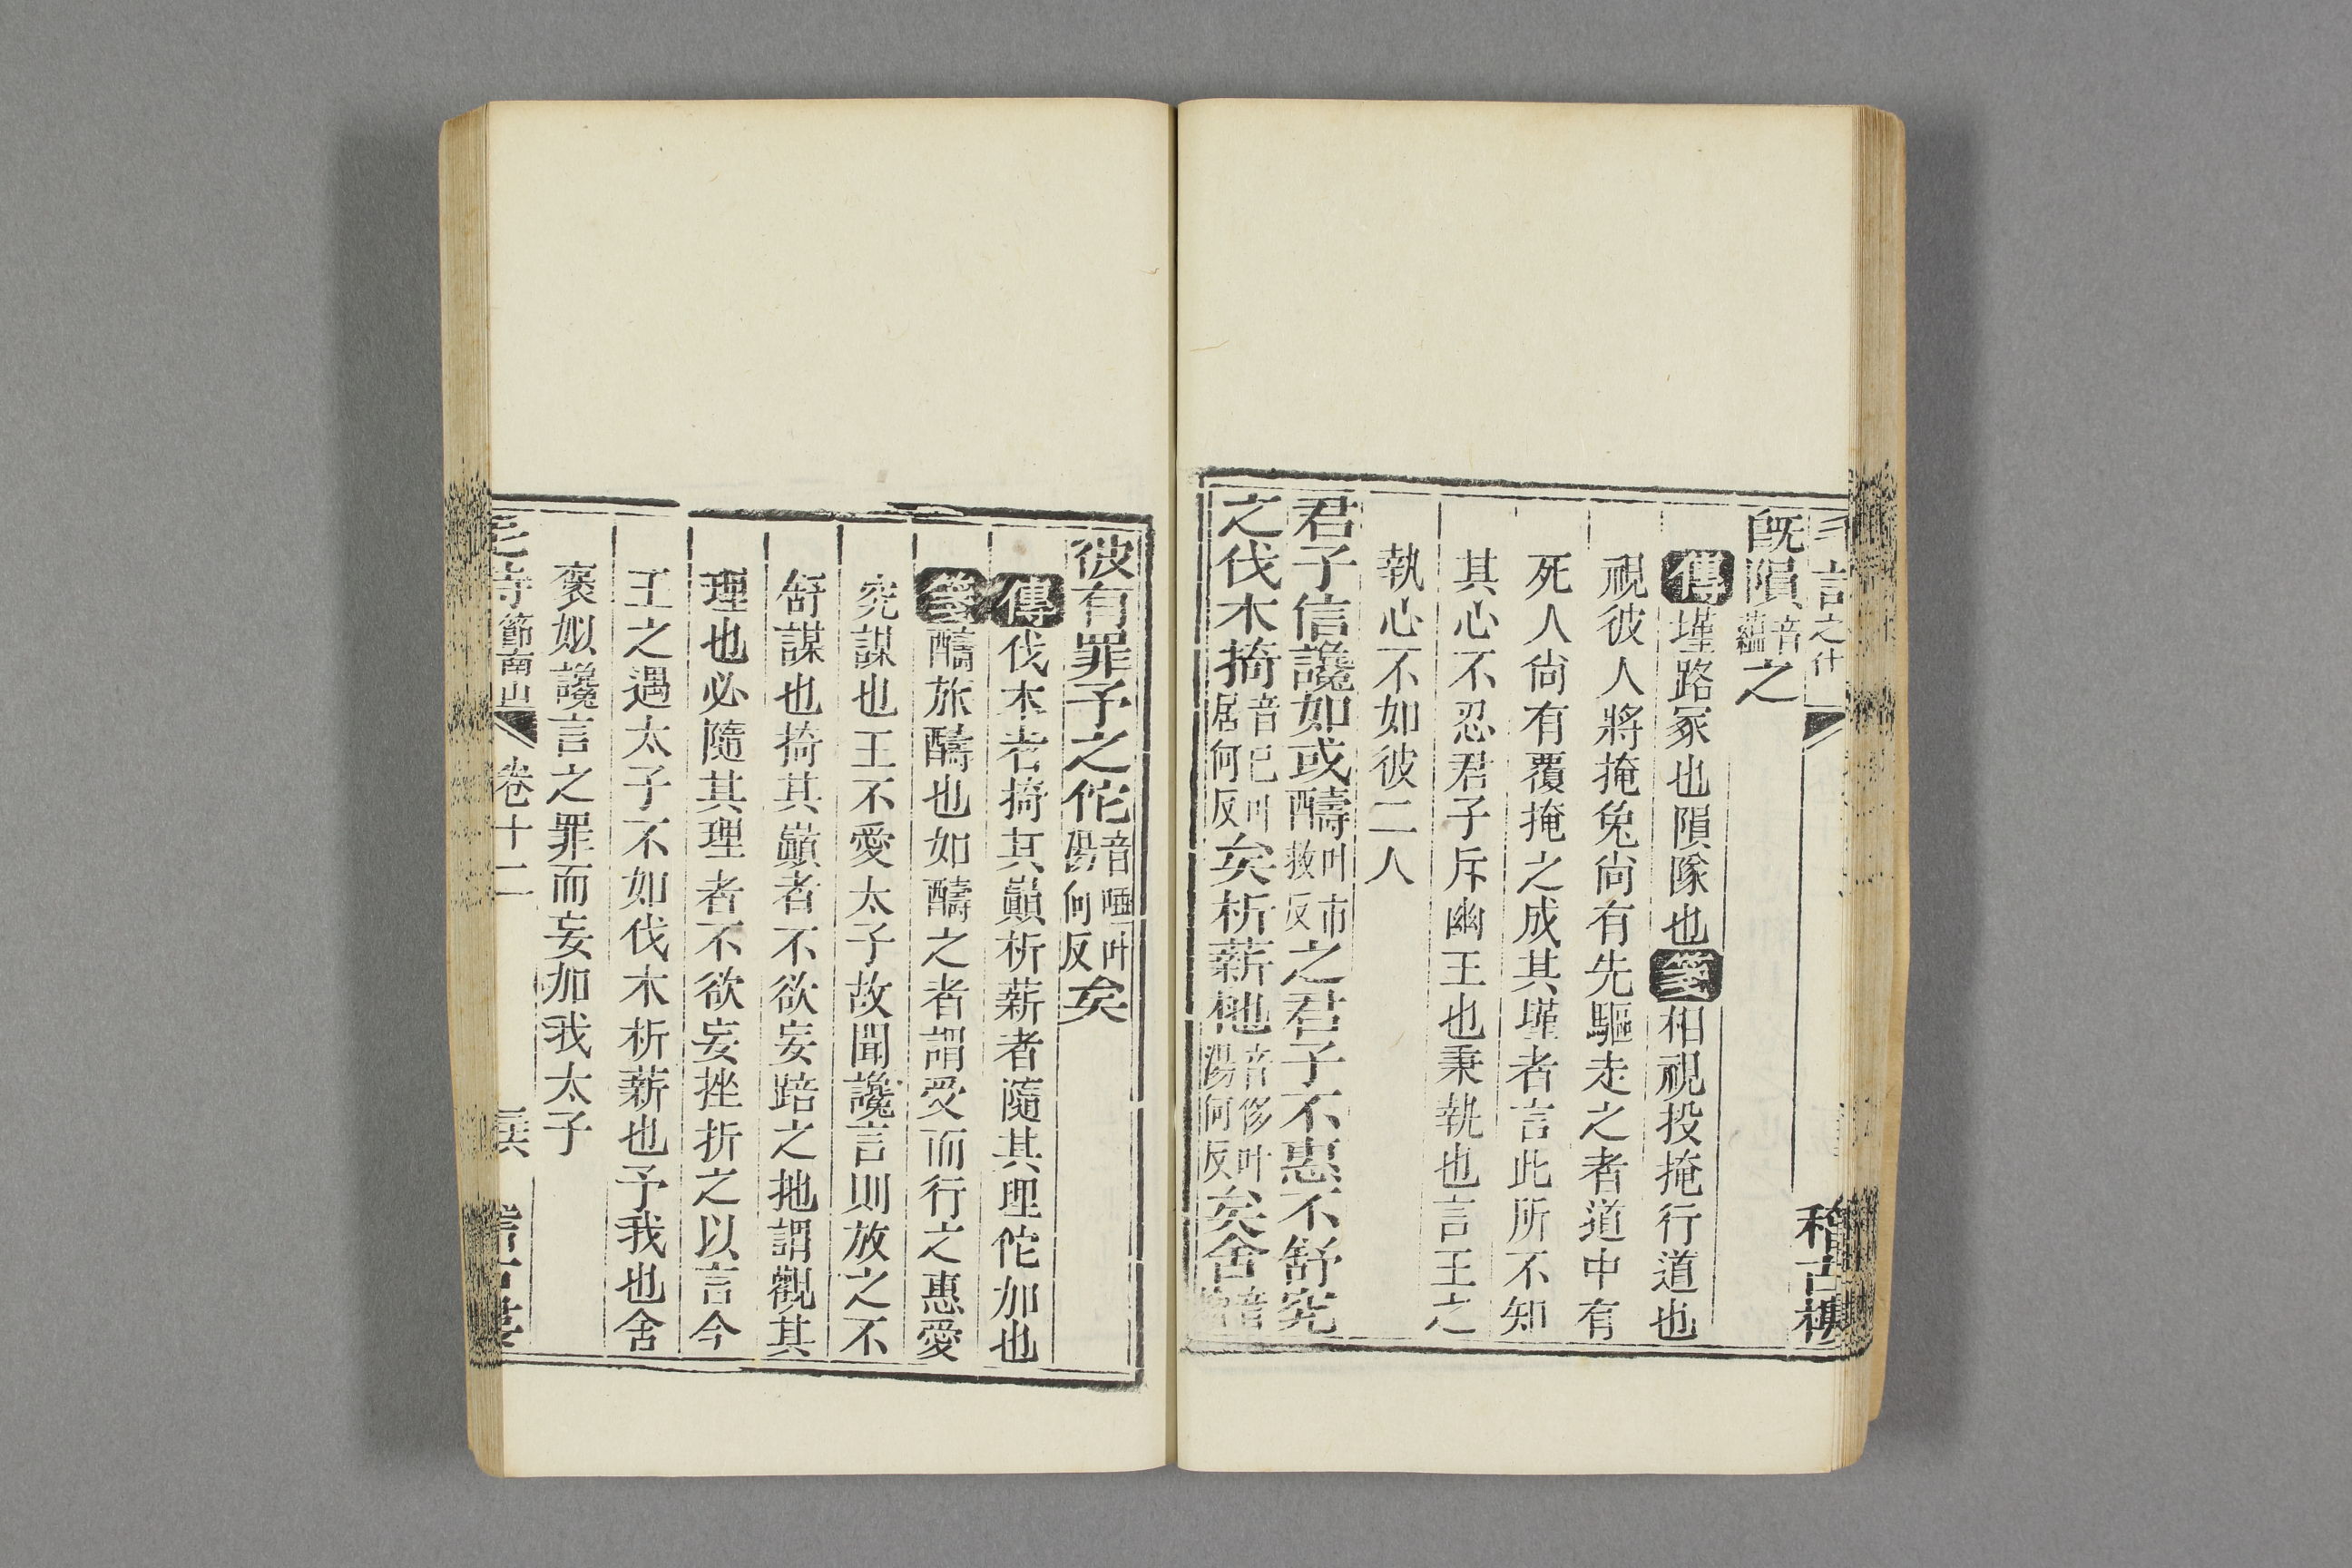 毛詩之什 稽古樓
旣隕音蘊之
傳墐路冢也隕隊也箋相視投掩行道也
視彼人將掩兔尙有先驅走之者道中有
死人尙有覆掩之成其墐者言此所不知
其心不忍君子斥幽王也秉執也言王之
執心不如彼二人
君子信讒如或醻叫市救反之君子不惠不舒究
之伐木掎音己叫居何反矣析薪杝音侈叶湯何反矣舍音捨
彼有罪予之佗音唾叶湯何反矣
傳伐木者掎其巓析薪者隨其理佗加也
箋醻旅醻也如醻之者謂受而行之惠愛
究謀也王不愛太子故聞讒言則放之不
舒謀也掎其巓者不欲妄踣之扡謂觀其
理也必隨其理者不欲妄挫折之以言今
王之遇太子不如伐木析薪也予我也舍
褒姒讒言之罪而妄加我太子
毛詩節南山 卷十二 稽古樓